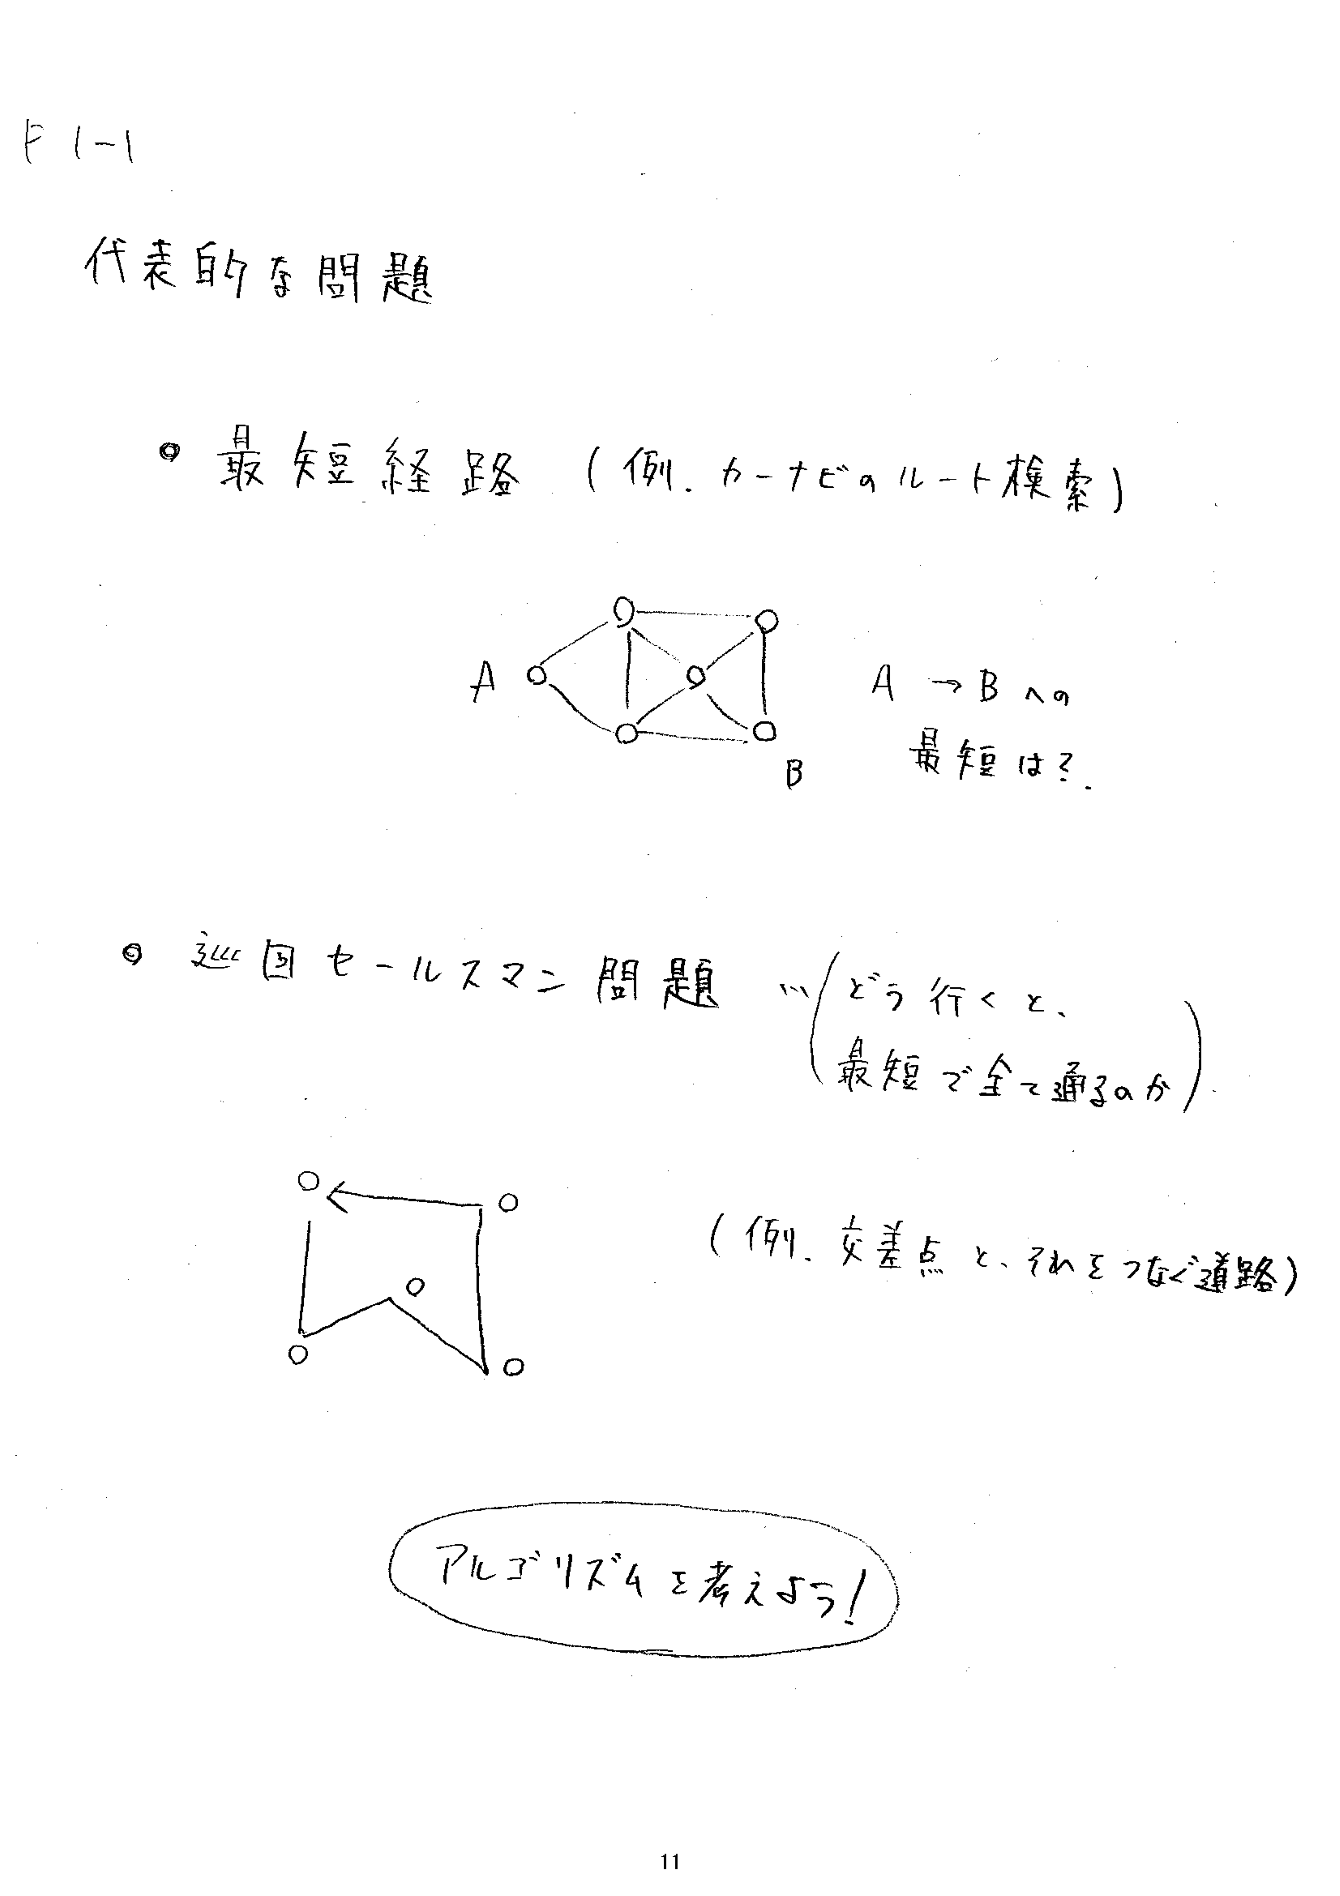 F 1-1
代表的な問題
最短経路 (例. カーナビのルート検索)
A
B
A → B への
最短は?.
巡回セールスマン問題 … (どう行くと、
最短で全て通るのか).
(例. 交差点と、それをつなぐ道路)
アルゴリズムを考えよう!
11